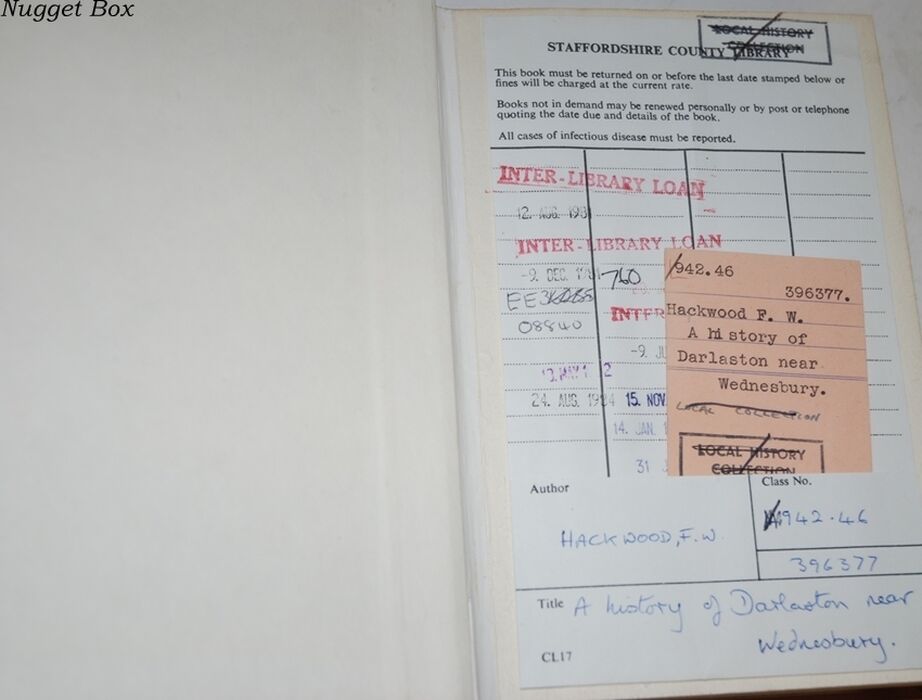 Nugget Box
LOCAL HISTORY
COLLECTION
STAFFORDSHIRE COUNTY LIBRARY
This book must be returned on or before the last date stamped below or
fines will be charged at the current rate.
Books not in demand may be renewed personally or by post or telephone
quoting the date due and details of the book.
All cases of infectious disease must be reported.
INTER-LIBRARY LOAN
12. AUG. 198
INTER-LIBRARY LOAN
-9. DEC.
760
08840
INTER
-9. JU
24. AUG. 1984
15. NOV
14. JAN.
31
942.46
396377.
Hackwood F. W.
A history of
Darlaston near
Wednesbury.
LOCAL COLLECTION
LOCAL HISTORY
COLLECTION
Author
HACKWOOD, F. W.
Class No.
942.46
396377
Title A history of Darlaston near
Wednesbury.
CL17